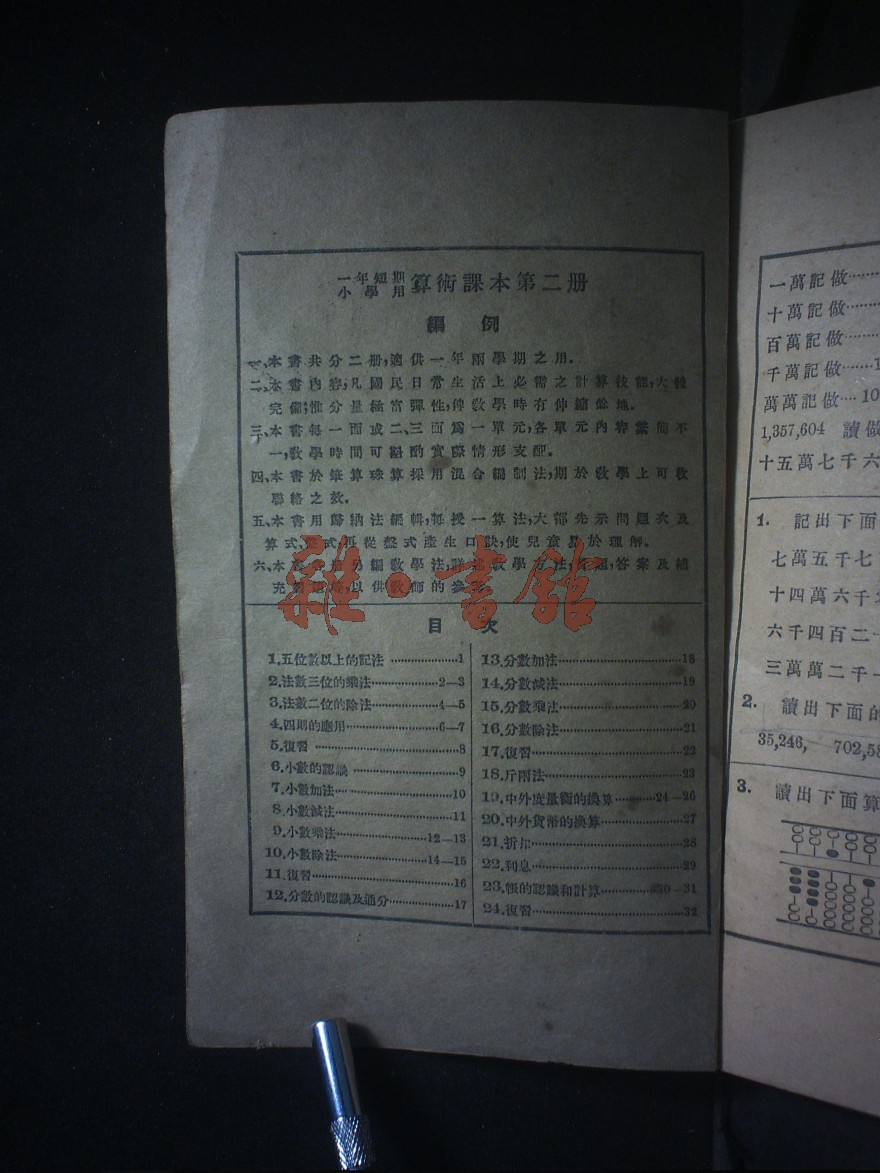 一年短期
小學用
算術課本第二册
編例
一、本書共分二册,適供一年兩學期之用。
二、本書內容,凡國民日常生活上必需之計算技能,大體
完備;惟分量極富彈性,俾敎學時有伸縮餘地。
三、本書每一面或二、三面爲一單元,各單元內容繁簡不
一,敎學時間可斟酌實際情形支配。
四、本書於筆算珠算採用混合編制法,期於敎學上可收
聯絡之效。
五、本書用歸納法編輯,每授一算法,大都先示問題次及
算式,盤式,再從盤式產生口訣,使兒童易於理解。
六、本書 另編敎學法,詳述敎學方法, 答案及補
充 以供敎師的參考。
雜·書館
目次
1.五位數以上的記法 1
2.法數三位的乘法 2—3
3.法數二位的除法 4—5
4.四則的應用 6—7
5.復習 8
6.小數的認識 9
7.小數加法 10
8.小數減法 11
9.小數乘法 12—13
10.小數除法 14—15
11.復習 16
12.分數的認識及通分 17
13.分數加法 18
14.分數減法 19
15.分數乘法 20
16.分數除法 21
17.復習 22
18.斤兩法 23
19.中外度量衡的換算 24—26
20.中外貨幣的換算 27
21.折扣 28
22.利息 29
23.帳的認識和計算 30—31
24.復習 32
一萬記做
十萬記做
百萬記做
千萬記做 1
萬萬記做 10
1,357,604 讀做
十五萬七千六
1. 記出下面
七萬五千七
十四萬六千
六千四百二十
三萬萬二千
2. 讀出下面的
35,246, 702,58
3. 讀出下面算